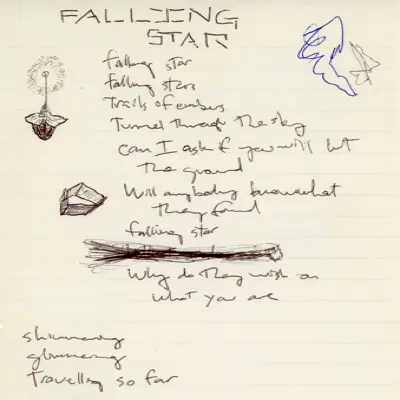 FALLING
STAR
falling star
falling stars
Trails of embers
Tunnel through the sky
can I ask if you will hit
the ground
Will anybody know what
they found
falling star
Why do they wish on
what you are
shimmering
glimmering
Travelling so far